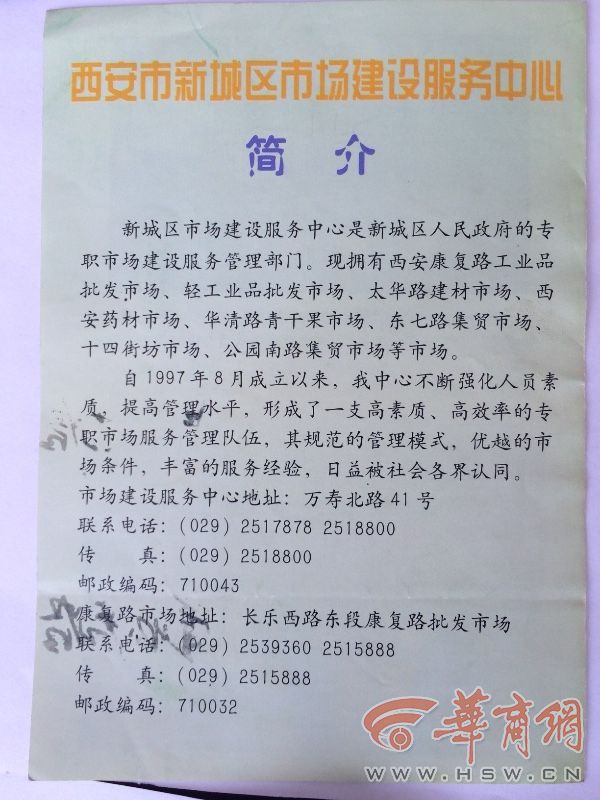 西安市新城区市场建设服务中心
简 介
新城区市场建设服务中心是新城区人民政府的专
职市场建设服务管理部门。现拥有西安康复路工业品
批发市场、轻工业品批发市场、太华路建材市场、西
安药材市场、华清路青干果市场、东七路集贸市场、
十四街坊市场、公园南路集贸市场等市场。
自1997年8月成立以来，我中心不断强化人员素
质，提高管理水平，形成了一支高素质、高效率的专
职市场服务管理队伍，其规范的管理模式，优越的市
场条件，丰富的服务经验，日益被社会各界认同。
市场建设服务中心地址：万寿北路41号
联系电话：(029) 2517878 2518800
传 真：(029) 2518800
邮政编码：710043
康复路市场地址：长乐西路东段康复路批发市场
联系电话：(029) 2539360 2515888
传 真：(029) 2515888
邮政编码：710032
華商網
WWW.HSW.CN